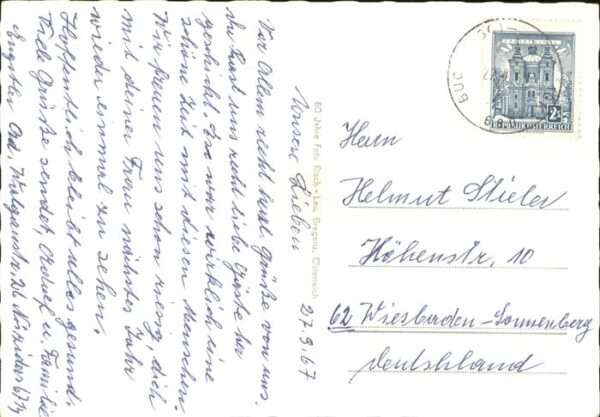 27.9.67
Unsere Lieben
Vor Allem recht herzl. Grüße von uns.
du hast uns recht liebe Gäste her
geschickt. Es war wirklich eine
schöne Zeit mit diesen Menschen.
Wir freuen uns schon riesig, dich
mit deiner Frau nächstes Jahr
wieder einmal zu sehen.
Hoffentlich bleibt alles gesund.
Viele Grüße sendet, u. Familie
60 Jahre Foto Risch-Lau, Bregenz, Österreich
REPUBLIK ÖSTERREICH
Herrn
Helmut Stieler
Höhenstr. 10
62 Wiesbaden-Sonnenberg
Deutschland